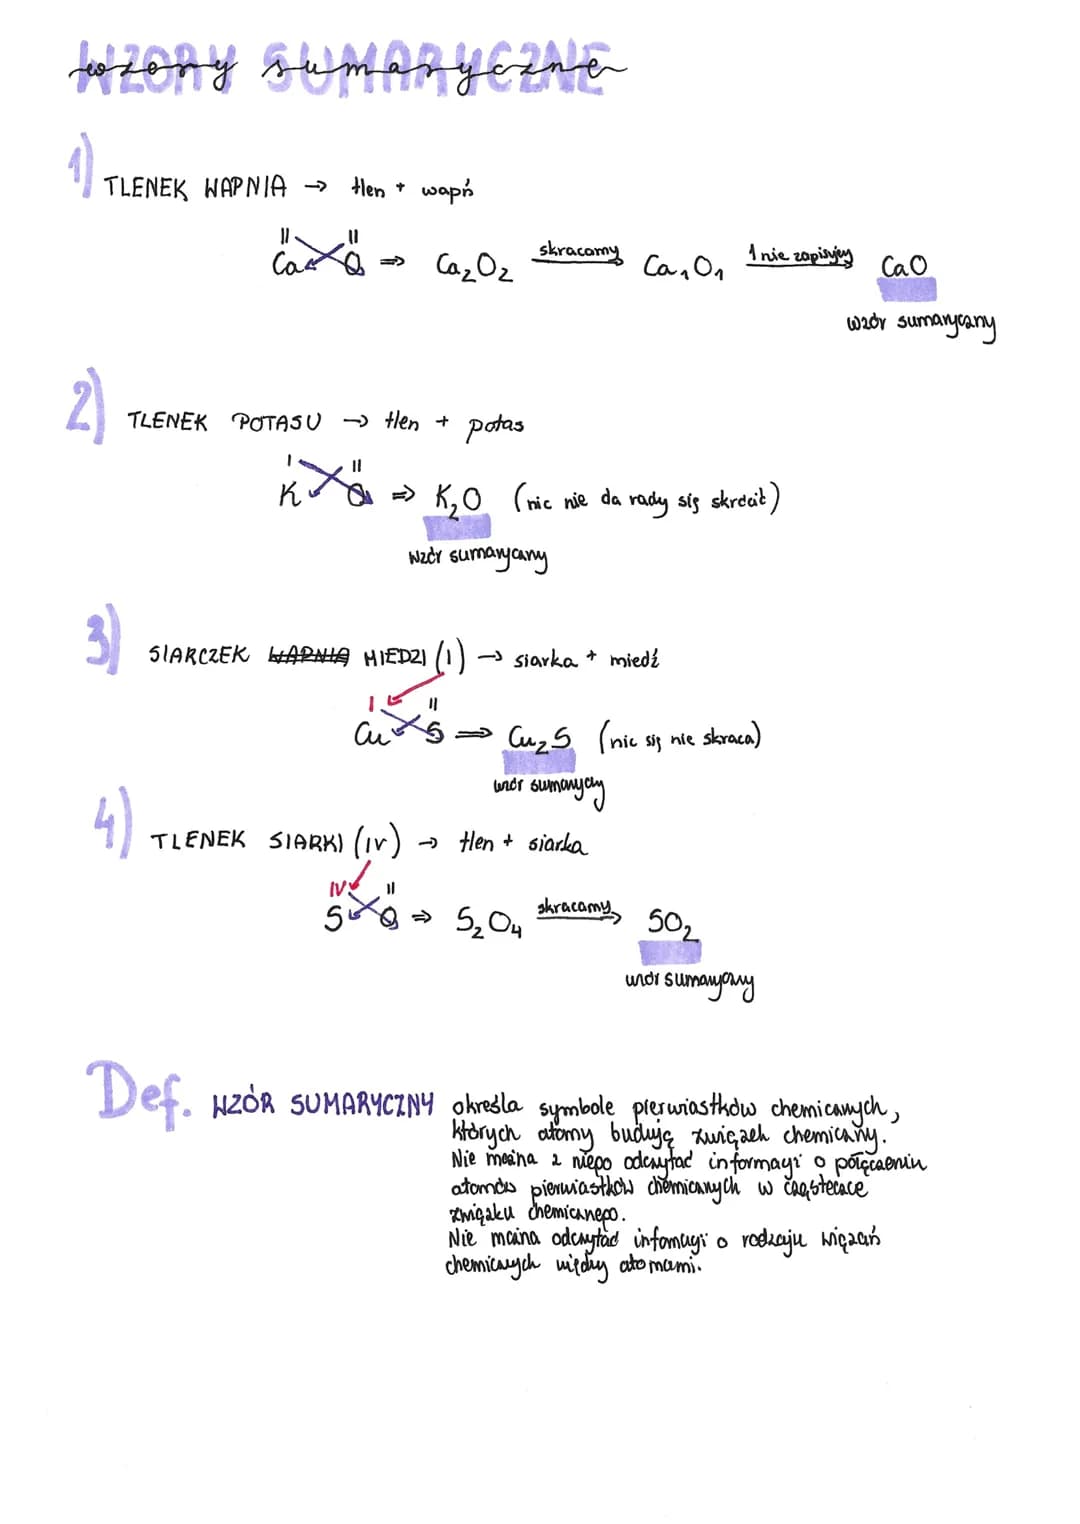 WZORY SUMARYCZNE
wzory sumaryczne
1) TLENEK WAPNIA → tlen + wapń
II II
Ca O ⇒ Ca₂O₂ skracamy Ca₁O₁ 1 nie zapisujey CaO
wzór sumaryczny
2) TLENEK POTASU → tlen + potas
I II
K O ⇒ K₂O (nic nie da rady się skrócić)
wzór sumaryczny
3) SIARCZEK WAPNIA MIEDZI (I) → siarka + miedź
I II
Cu S ⇒ Cu₂S (nic się nie skraca)
wzór sumaryczny
4) TLENEK SIARKI (IV) → tlen + siarka
IV II
S O ⇒ S₂O₄ skracamy SO₂
wzór sumaryczny
Def. WZÓR SUMARYCZNY określa symbole pierwiastków chemicznych,
których atomy budują związek chemiczny.
Nie można z niego odczytać informacji o połączeniu
atomów pierwiastków chemicznych w cząsteczce
związku chemicznego.
Nie można odczytać informacji o rodzaju wiązań
chemicznych między atomami.